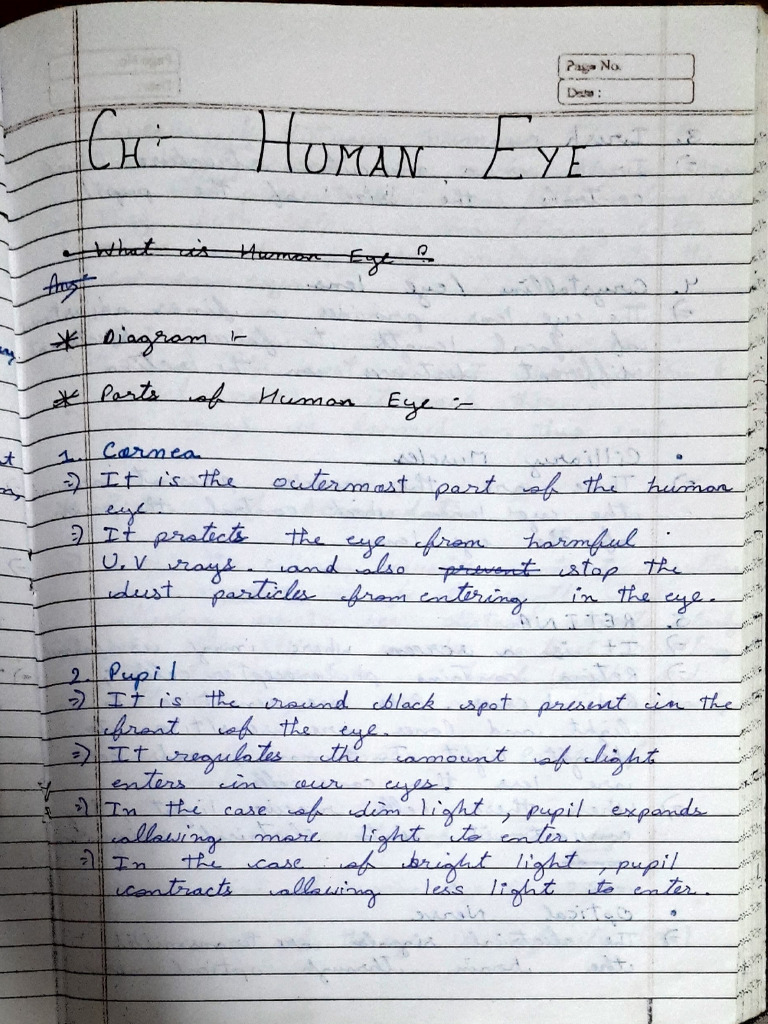 Page No.
Date :
CH :- HUMAN EYE
• What is Human Eye ?
Ans
* Diagram :-
* Parts of Human Eye :-
1. Cornea
=) It is the outermost part of the human
eye.
=) It protects the eye from harmful
U.V rays. and also prevent stop the
dust particles from entering in the eye.
2. Pupil
=) It is the round black spot present in the
front of the eye.
=) It regulates the amount of light
enters in our eyes.
=) In the case of dim light , pupil expands
allowing more light to enter.
=) In the case of bright light , pupil
contracts allowing less light to enter.